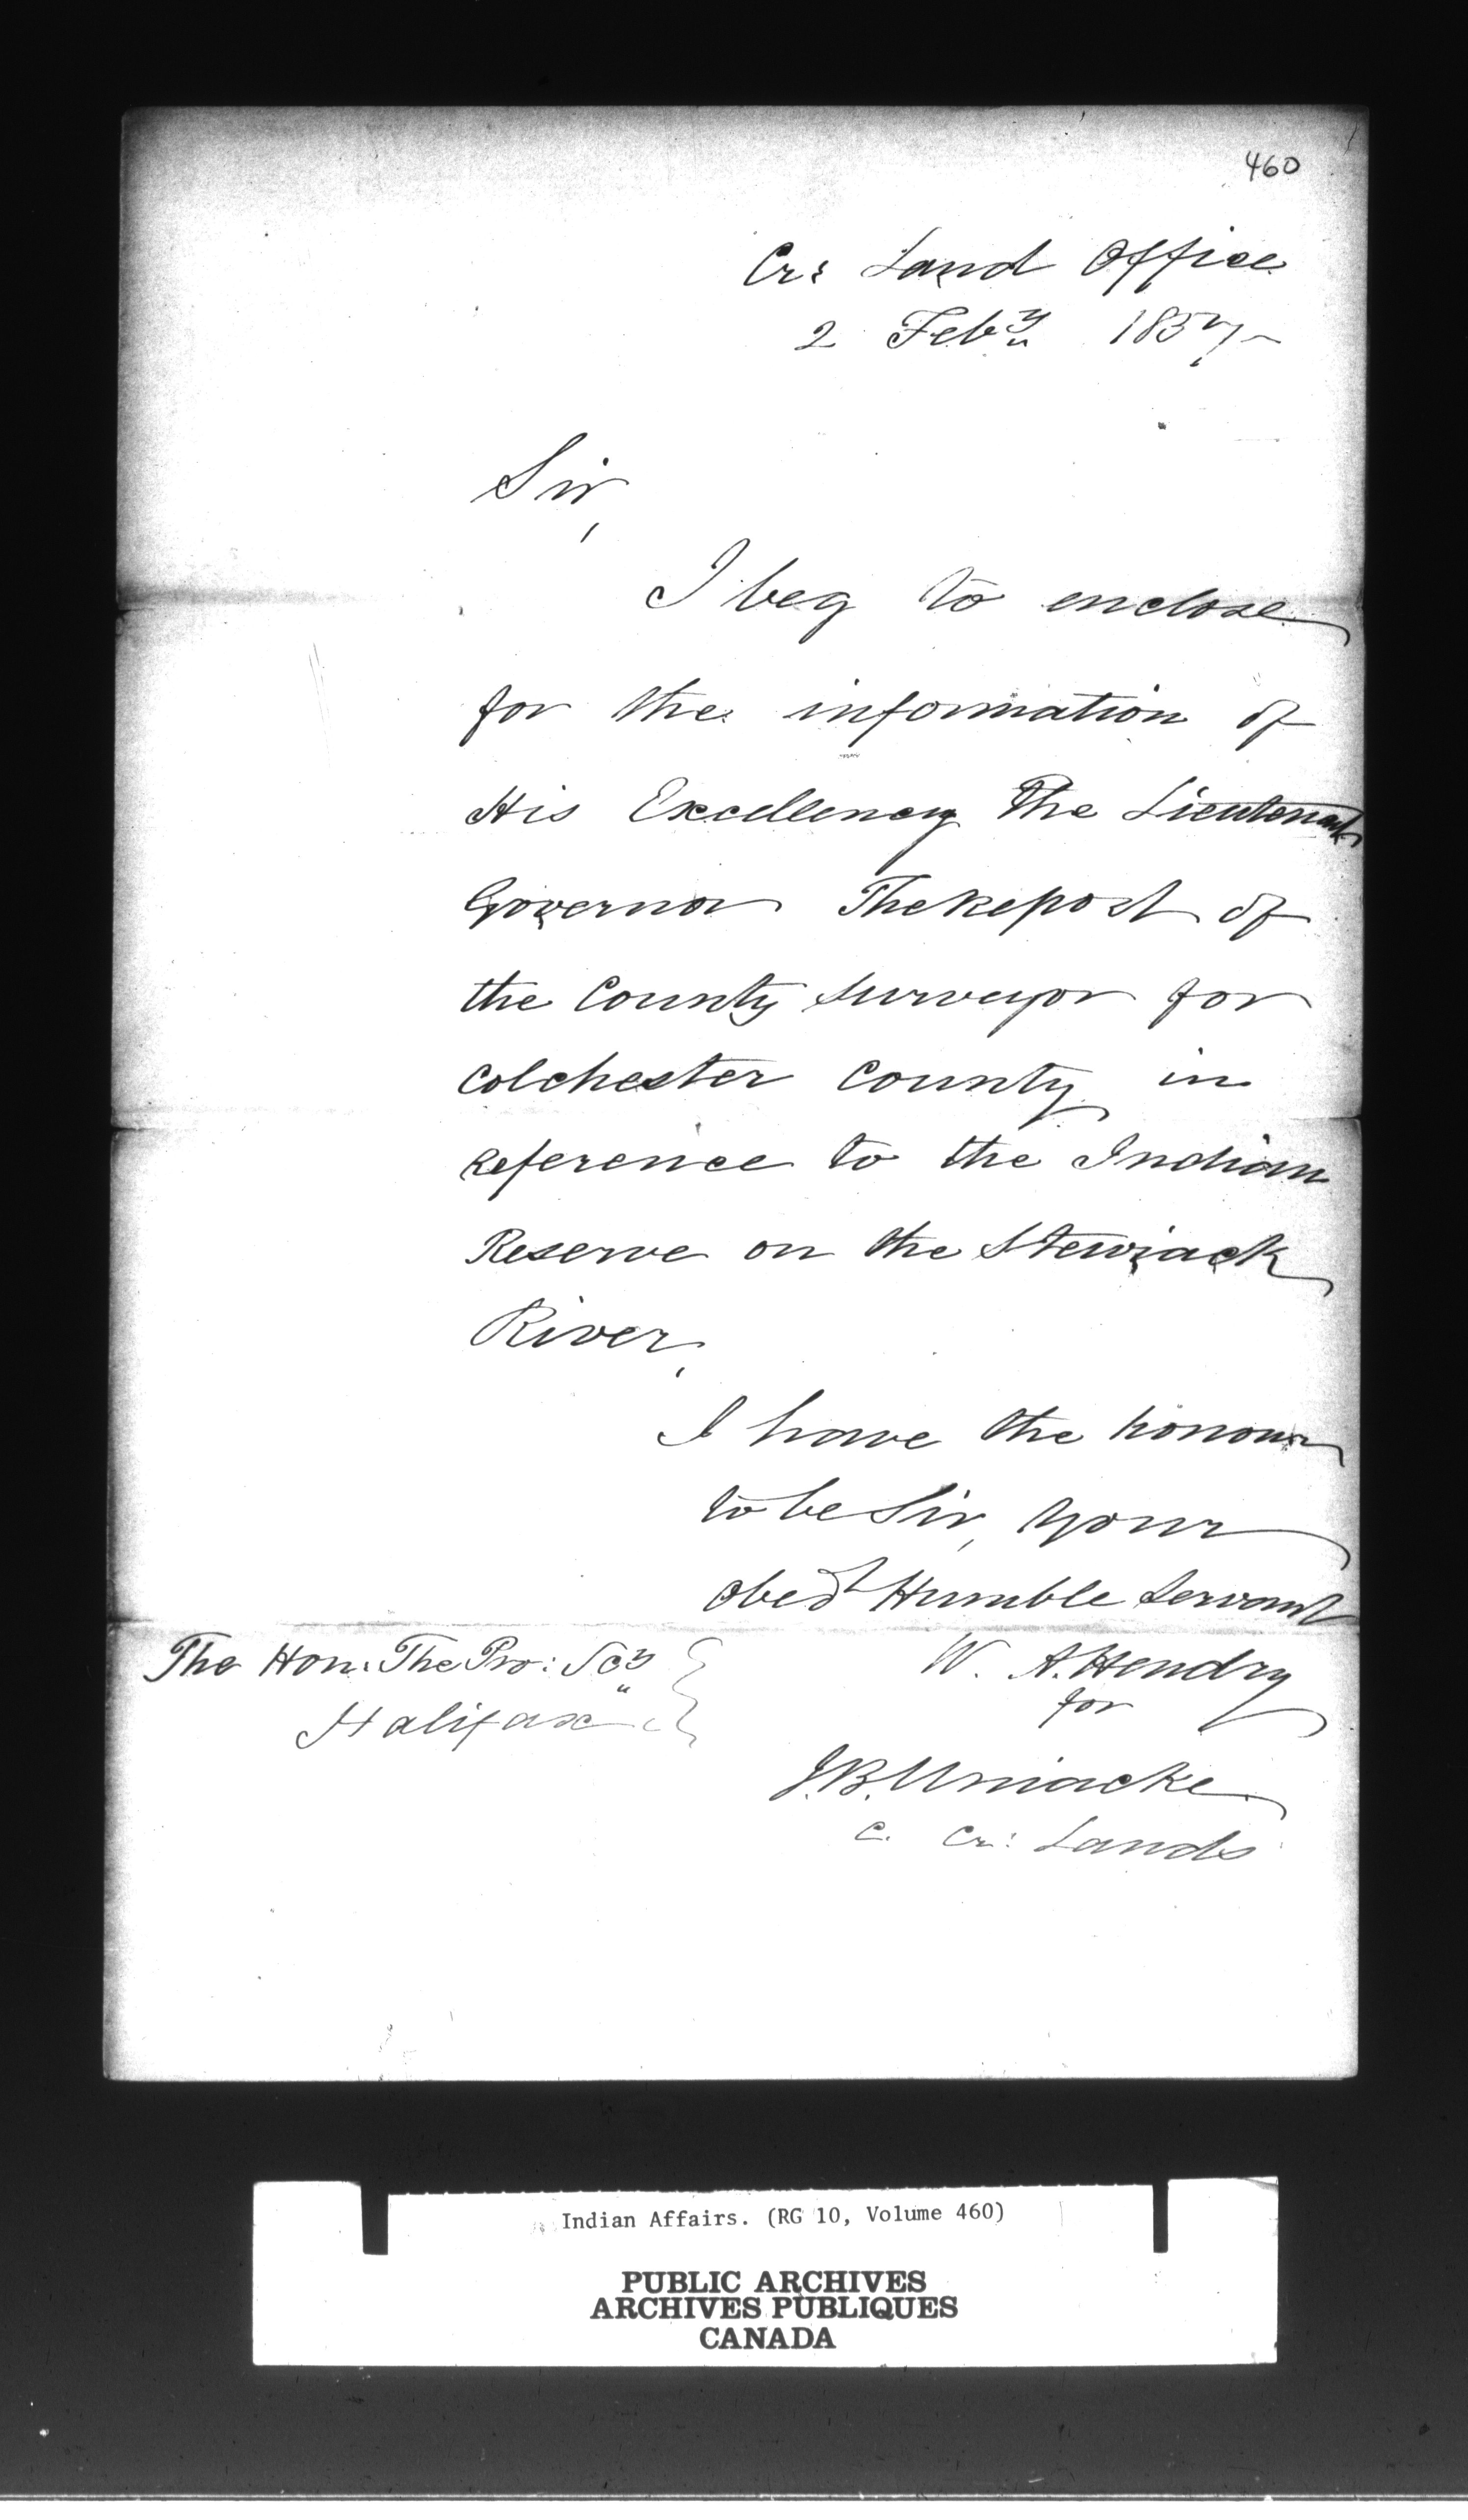 460
Cr: Land Office
2 Feby 1857
Sir,
I beg to enclose
for the information of
His Excellency The Lieutenant
Governor The Report of
the County Surveyor for
Colchester County in
Reference to the Indian
Reserve on the Stewiack
River,
I have the honour
to be Sir, your
obedt Humble Servant
W. A. Hendry
for
J.B. Uniacke
C. Cr: Lands
The Hon: The Pro: Scy
Halifax
Indian Affairs. (RG 10, Volume 460)
PUBLIC ARCHIVES
ARCHIVES PUBLIQUES
CANADA